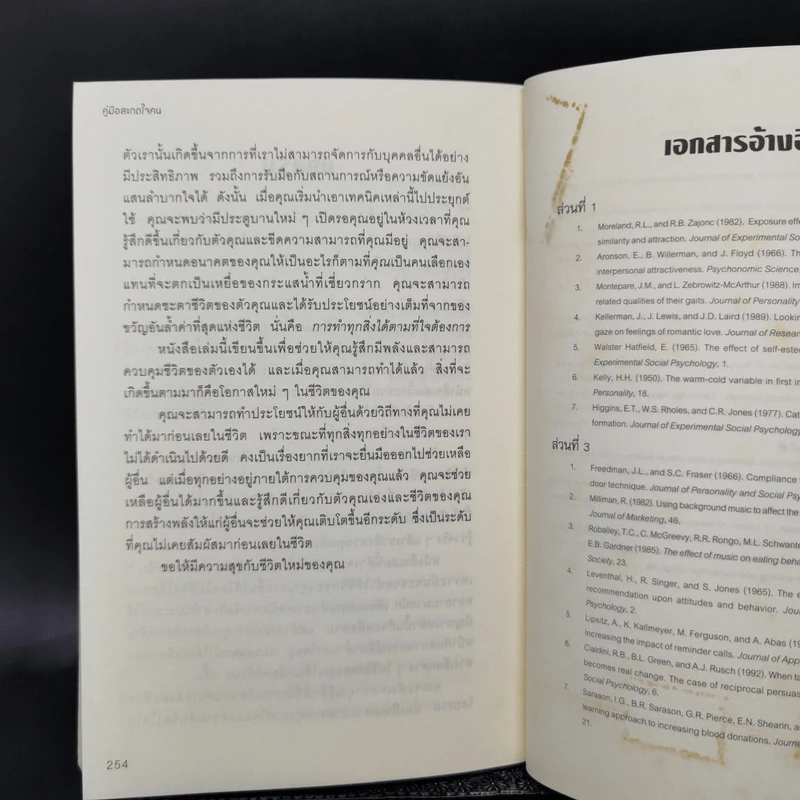 คู่มือสะกดใจคน
ตัวเรานั้นเกิดขึ้นจากการที่เราไม่สามารถจัดการกับบุคคลอื่นได้อย่าง
มีประสิทธิภาพ รวมถึงการรับมือกับสถานการณ์หรือความขัดแย้งอัน
แสนลำบากใจได้ ดังนั้น เมื่อคุณเริ่มนำเอาเทคนิคเหล่านี้ไปประยุกต์
ใช้ คุณจะพบว่ามีประตูบานใหม่ ๆ เปิดรอคุณอยู่ในห้วงเวลาที่คุณ
รู้สึกดีขึ้นเกี่ยวกับตัวคุณและขีดความสามารถที่คุณมีอยู่ คุณจะสา-
มารถกำหนดอนาคตของคุณให้เป็นอะไรก็ตามที่คุณเป็นคนเลือกเอง
แทนที่จะตกเป็นเหยื่อของกระแสน้ำที่เชี่ยวกราก คุณจะสามารถ
กำหนดชะตาชีวิตของตัวคุณและได้รับประโยชน์อย่างเต็มที่จากของ
ขวัญอันล้ำค่าที่สุดแห่งชีวิต นั่นคือ การทำทุกสิ่งได้ตามที่ใจต้องการ
หนังสือเล่มนี้เขียนขึ้นเพื่อช่วยให้คุณรู้สึกมีพลังและสามารถ
ควบคุมชีวิตของตัวเองได้ และเมื่อคุณสามารถทำได้แล้ว สิ่งที่จะ
เกิดขึ้นตามมาก็คือโอกาสใหม่ ๆ ในชีวิตของคุณ
คุณจะสามารถทำประโยชน์ให้กับผู้อื่นด้วยวิถีทางที่คุณไม่เคย
ทำได้มาก่อนเลยในชีวิต เพราะขณะที่ทุกสิ่งทุกอย่างในชีวิตของเรา
ไม่ได้ดำเนินไปด้วยดี คงเป็นเรื่องยากที่เราจะยื่นมือออกไปช่วยเหลือ
ผู้อื่น แต่เมื่อทุกอย่างอยู่ภายใต้การควบคุมของคุณแล้ว คุณจะช่วย
เหลือผู้อื่นได้มากขึ้นและรู้สึกดีเกี่ยวกับตัวคุณเองและชีวิตของคุณ
การสร้างพลังให้แก่ผู้อื่นจะช่วยให้คุณเติบโตขึ้นอีกระดับ ซึ่งเป็นระดับ
ที่คุณไม่เคยสัมผัสมาก่อนเลยในชีวิต
ขอให้มีความสุขกับชีวิตใหม่ของคุณ
254
เอกสารอ้างอิ
ส่วนที่ 1
1. Moreland, R.L., and R.B. Zajonc (1982). Exposure effe
similarity and attraction. Journal of Experimental So
2. Aronson, E., B. Willerman, and J. Floyd (1966). Th
interpersonal attractiveness. Psychonomic Science,
3. Montepare, J.M., and L. Zebrowitz-McArthur (1988). Im
related qualities of their gaits. Journal of Personality
4. Kellerman, J., J. Lewis, and J.D. Laird (1989). Lookin
gaze on feelings of romantic love. Journal of Resear
5. Walster Hatfield, E. (1965). The effect of self-este
Experimental Social Psychology, 1.
6. Kelly, H.H. (1950). The warm-cold variable in first i
Personality, 18.
7. Higgins, E.T., W.S. Rholes, and C.R. Jones (1977). Cat
formation. Journal of Experimental Social Psychology
ส่วนที่ 3
1. Freedman, J.L., and S.C. Fraser (1966). Compliance
door technique. Journal of Personality and Social Psy
2. Milliman, R. (1982). Using background music to affect the
Journal of Marketing, 46.
3. Roballey, T.C., C. McGreevy, R.R. Rongo, M.L. Schwante
E.B. Gardner (1985). The effect of music on eating behav
Society, 23.
4. Leventhal, H., R. Singer, and S. Jones (1965). The e
recommendation upon attitudes and behavior. Journal
Psychology, 2.
5. Lipsitz, A., K. Kallmeyer, M. Ferguson, and A. Abas (19
increasing the impact of reminder calls. Journal of App
6. Cialdini, R.B., B.L. Green, and A.J. Rusch (1992). When ta
becomes real change. The case of reciprocal persuas
Social Psychology, 6.
7. Sarason, I.G., B.R. Sarason, G.R. Pierce, E.N. Shearin, an
learning approach to increasing blood donations. Journa
21.